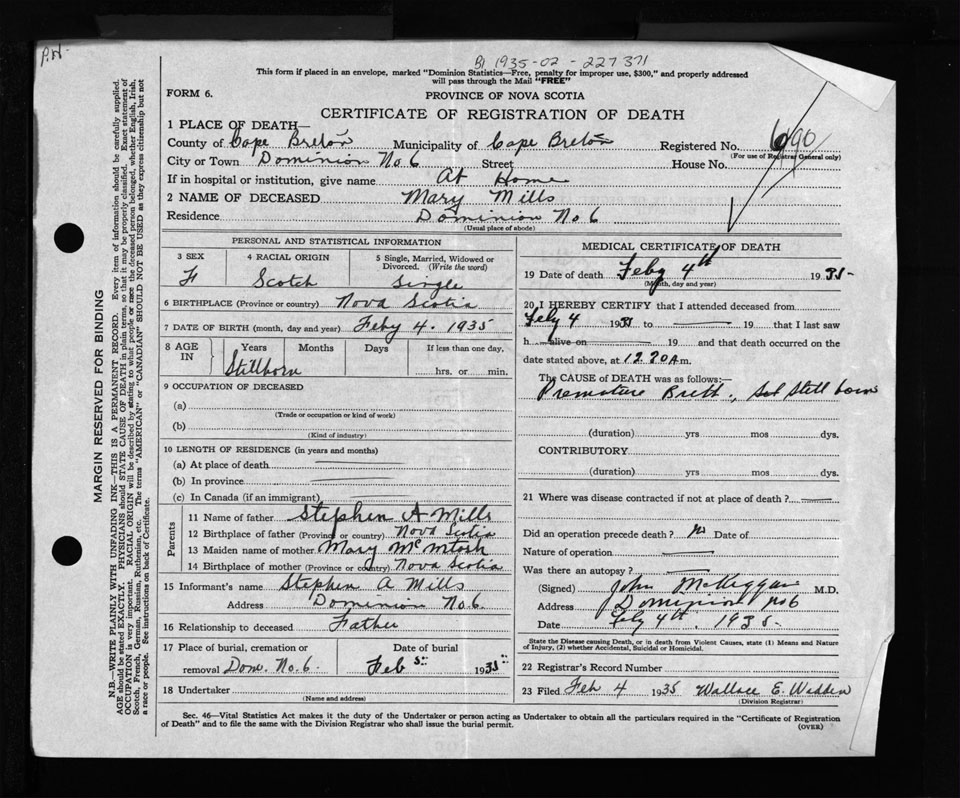 P.H.
B1 1935-02-227371
This form if placed in an envelope, marked "Dominion Statistics—Free, penalty for improper use, $300," and properly addressed
will pass through the Mail "FREE"
FORM 6.
PROVINCE OF NOVA SCOTIA
CERTIFICATE OF REGISTRATION OF DEATH
1 PLACE OF DEATH—
County of Cape Breton Municipality of Cape Breton Registered No. 690
(For use of Registrar General only)
City or Town Dominion No 6 Street House No.
If in hospital or institution, give name At Home
2 NAME OF DECEASED Mary Mills
Residence Dominion No 6
(Usual place of abode)
PERSONAL AND STATISTICAL INFORMATION
3 SEX 4 RACIAL ORIGIN 5 Single, Married, Widowed or
Divorced. (Write the word)
F Scotch Single
6 BIRTHPLACE (Province or country) Nova Scotia
7 DATE OF BIRTH (month, day and year) Feby 4. 1935
8 AGE IN Years Months Days If less than one day,
Stillborn hrs. or min.
9 OCCUPATION OF DECEASED
(a)
(Trade or occupation or kind of work)
(b)
(Kind of industry)
10 LENGTH OF RESIDENCE (in years and months)
(a) At place of death
(b) In province
(c) In Canada (if an immigrant)
Parents
11 Name of father Stephen A Mills
12 Birthplace of father (Province or country) Nova Scotia
13 Maiden name of mother Mary McIntosh
14 Birthplace of mother (Province or country) Nova Scotia
15 Informant's name Stephen A Mills
Address Dominion No. 6
16 Relationship to deceased Father
17 Place of burial, cremation or Date of burial
removal Dom. No. 6. Feb 5th 1935
18 Undertaker
(Name and address)
MEDICAL CERTIFICATE OF DEATH
19 Date of death Feby 4th 1935
(Month, day and year)
20 I HEREBY CERTIFY that I attended deceased from
Feby 4 1935 to 19 that I last saw
h alive on 19 and that death occurred on the
date stated above, at 12.20 A m.
The CAUSE of DEATH was as follows:—
Premature Birth, Still born
(duration) yrs mos dys.
CONTRIBUTORY
(duration) yrs mos dys.
21 Where was disease contracted if not at place of death?
Did an operation precede death? No Date of
Nature of operation
Was there an autopsy?
(Signed) John M.D.
Address Dominion No 6
Date Feby 4th. 1935
State the Disease causing Death, or in death from Violent Causes, state (1) Means and Nature
of Injury, (2) whether Accidental, Suicidal or Homicidal.
22 Registrar's Record Number
23 Filed Feb 4 1935 Wallace E. Wadden
(Division Registrar)
Sec. 46—Vital Statistics Act makes it the duty of the Undertaker or person acting as Undertaker to obtain all the particulars required in the "Certificate of Registration
of Death" and to file the same with the Division Registrar who shall issue the burial permit.
(OVER)
MARGIN RESERVED FOR BINDING
N.B.—WRITE PLAINLY WITH UNFADING INK—THIS IS A PERMANENT RECORD. Every item of information should be carefully supplied.
AGE should be stated EXACTLY. PHYSICIANS should STATE CAUSE OF DEATH in plain terms, so that it may be properly classified. Exact statement of
OCCUPATION is very important. RACIAL ORIGIN will be described by stating to what people or race the deceased person belonged, whether English, Irish,
Scotch, French, German, Russian, Ruthenian, etc. The terms "AMERICAN" or "CANADIAN" SHOULD NOT BE USED as they express citizenship but not
a race or people. See instructions on back of Certificate.